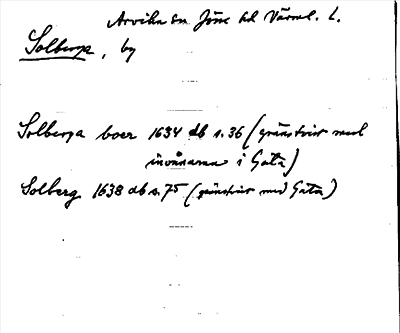 Arvika sn Jösse hd Värml. l.
Solberga, by
Solberga boer 1634 db s. 36 (gränstvist med
invånarna i Gata)
Solberg 1638 db s. 75 (gränstvist med Gata)